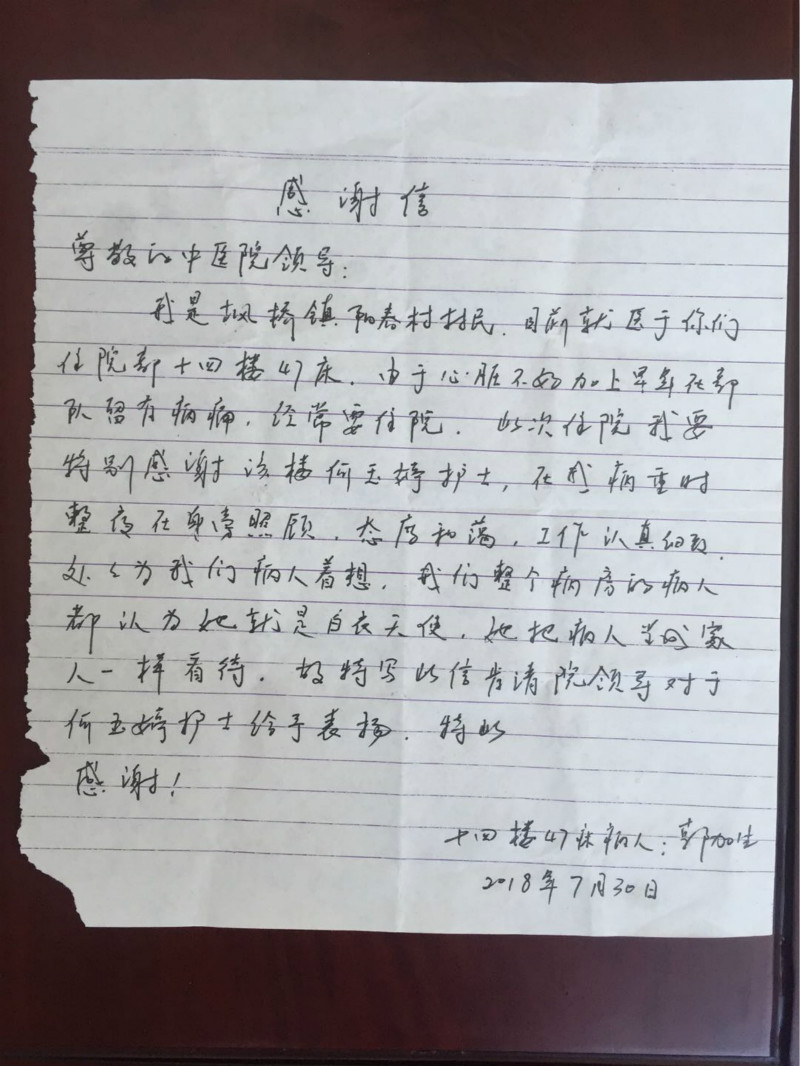 感谢信
尊敬的中医院领导:
我是枫桥镇阳春村村民.目前就医于你们
住院部十四楼47床.由于心脏不好加上早年在部
队留有病痛,经常要住院.此次住院我要
特别感谢该楼何玉婷护士,在我病重时
整夜在身旁照顾,态度和蔼,工作认真细致.
处处为我们病人着想.我们整个病房的病人
都认为她就是白衣天使,她把病人当成家
人一样看待.故特写此信肯请院领导对于
何玉婷护士给予表扬.特此
感谢!
十四楼47床病人:郭加生
2018年7月30日